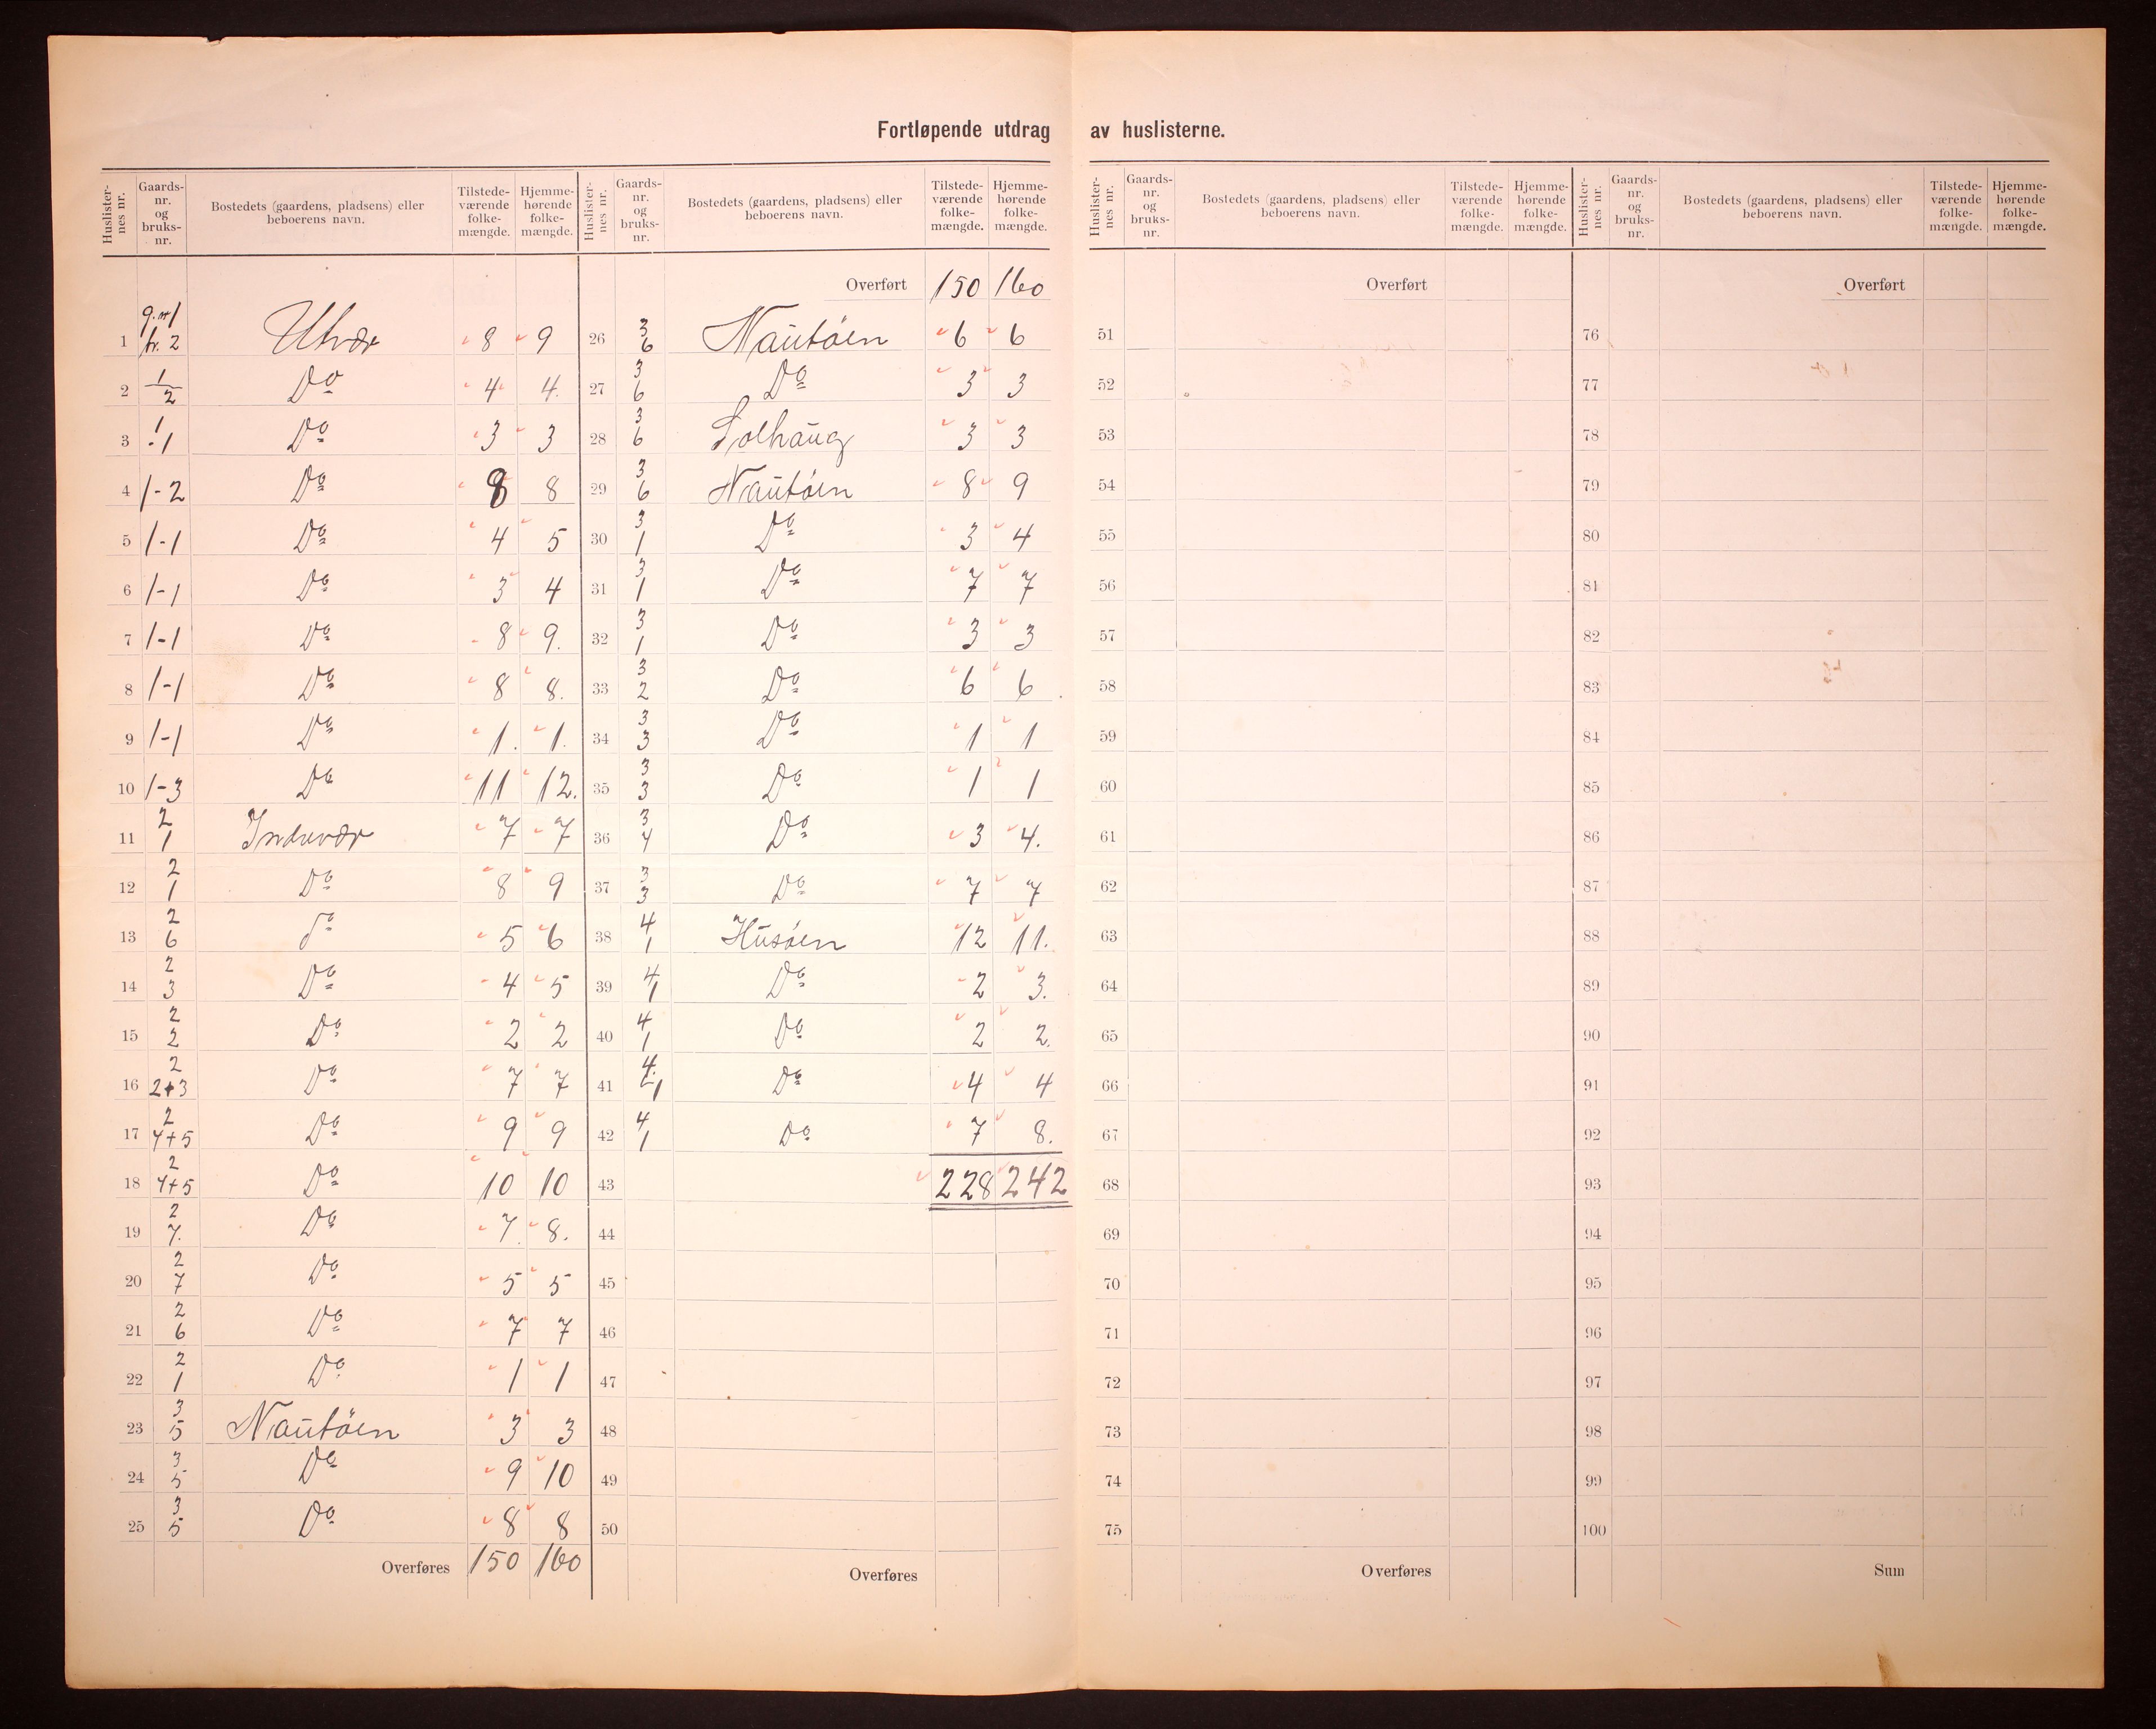 Fortløpende utdrag av huslisterne.
Huslister-nes nr. Gaards-nr. og bruks-nr. Bostedets (gaardens, pladsens) eller beboerens navn. Tilstede-værende folke-mængde. Hjemme-hørende folke-mængde.
1 g.nr 1 br. 2 Utvær 8 9
2 1/2 Do 4 4.
3 1-1 Do 3 3
4 1-2 Do 8 8
5 1-1 Do 4 5
6 1-1 Do 3 4
7 1-1 Do 8 9.
8 1-1 Do 8 8.
9 1-1 Do 1. 1.
10 1-3 Do 11 12.
11 2 1 Indrevær 7 7
12 2 1 Do 8 9
13 2 6 do 5 6
14 2 3 Do 4 5
15 2 2 Do 2 2
16 2 2+3 Do 7 7
17 2 4+5 Do 9 9
18 2 4+5 Do 10 10
19 2 7. Do 7. 8.
20 2 7 Do 5 5
21 2 6 Do 7 7
22 2 1 Do 1 1
23 3 5 Nautöen 3 3
24 3 5 Do 9 10
25 3 5 Do 8 8
Overføres 150 160
Huslister-nes nr. Gaards-nr. og bruks-nr. Bostedets (gaardens, pladsens) eller beboerens navn. Tilstede-værende folke-mængde. Hjemme-hørende folke-mængde.
Overført 150 160
26 3 6 Nautöen 6 6
27 3 6 Do 3 3
28 3 6 Solhaug 3 3
29 3 6 Nautöen 8 9
30 3 1 Do 3 4
31 3 1 Do 7 7
32 3 1 Do 3 3
33 3 2 Do 6 6
34 3 3 Do 1 1
35 3 3 Do 1 1
36 3 4 Do 3 4.
37 3 3 Do 7 7
38 4 1 Husöen 12 11.
39 4 1 Do 2 3.
40 4 1 Do 2 2.
41 4 1 Do 4 4
42 4 1 Do 7 8.
43 228 242
44
45
46
47
48
49
50
Overføres
Huslister-nes nr. Gaards-nr. og bruks-nr. Bostedets (gaardens, pladsens) eller beboerens navn. Tilstede-værende folke-mængde. Hjemme-hørende folke-mængde.
Overført
51
52
53
54
55
56
57
58
59
60
61
62
63
64
65
66
67
68
69
70
71
72
73
74
75
Overføres
Huslister-nes nr. Gaards-nr. og bruks-nr. Bostedets (gaardens, pladsens) eller beboerens navn. Tilstede-værende folke-mængde. Hjemme-hørende folke-mængde.
Overført
76
77
78
79
80
81
82
83
84
85
86
87
88
89
90
91
92
93
94
95
96
97
98
99
100
Sum